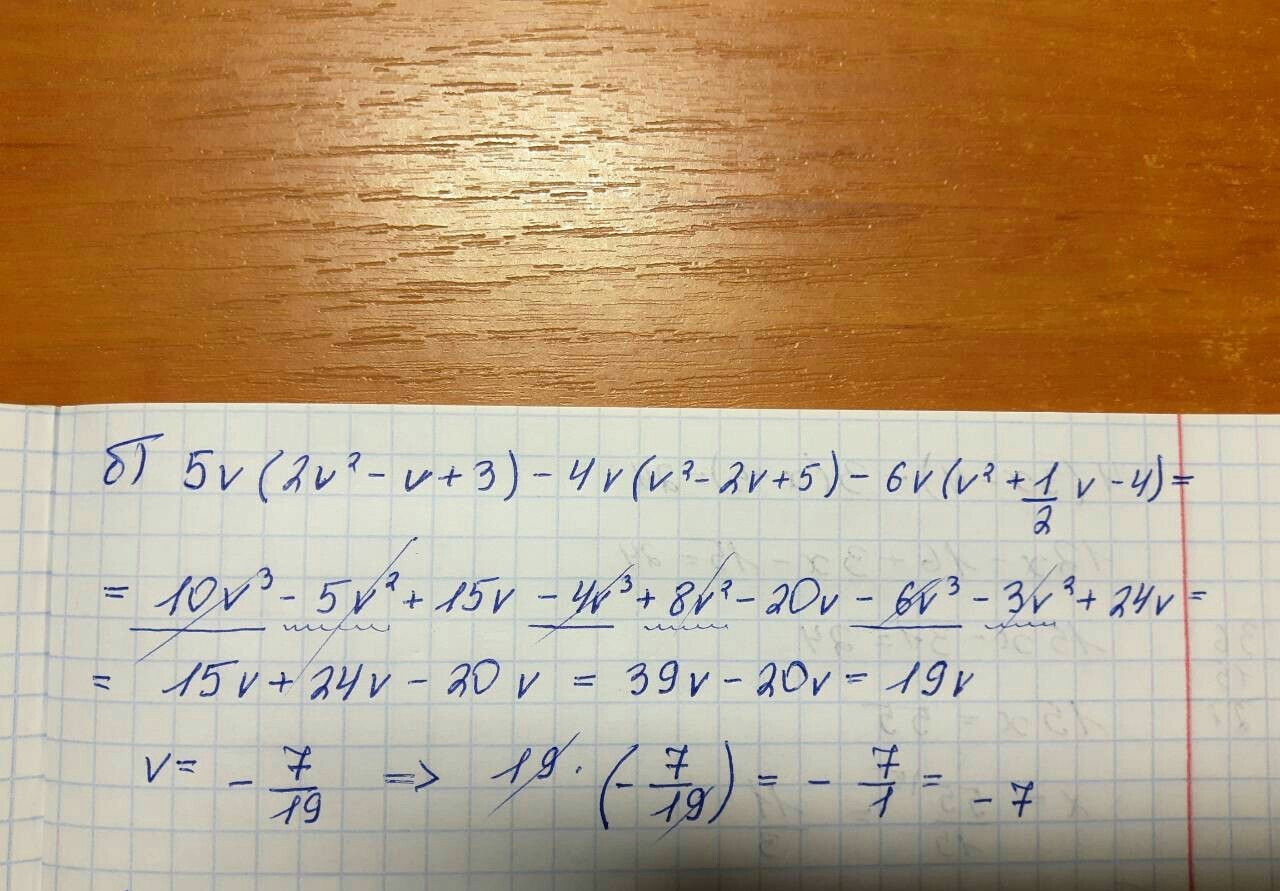 б) 5v(2v² - v + 3) - 4v(v² - 2v + 5) - 6v(v² + 1/2 v - 4) =
= 10v³ - 5v² + 15v - 4v³ + 8v² - 20v - 6v³ - 3v² + 24v =
= 15v + 24v - 20v = 39v - 20v = 19v
v = - 7/19 => 19 · (- 7/19) = - 7/1 = - 7